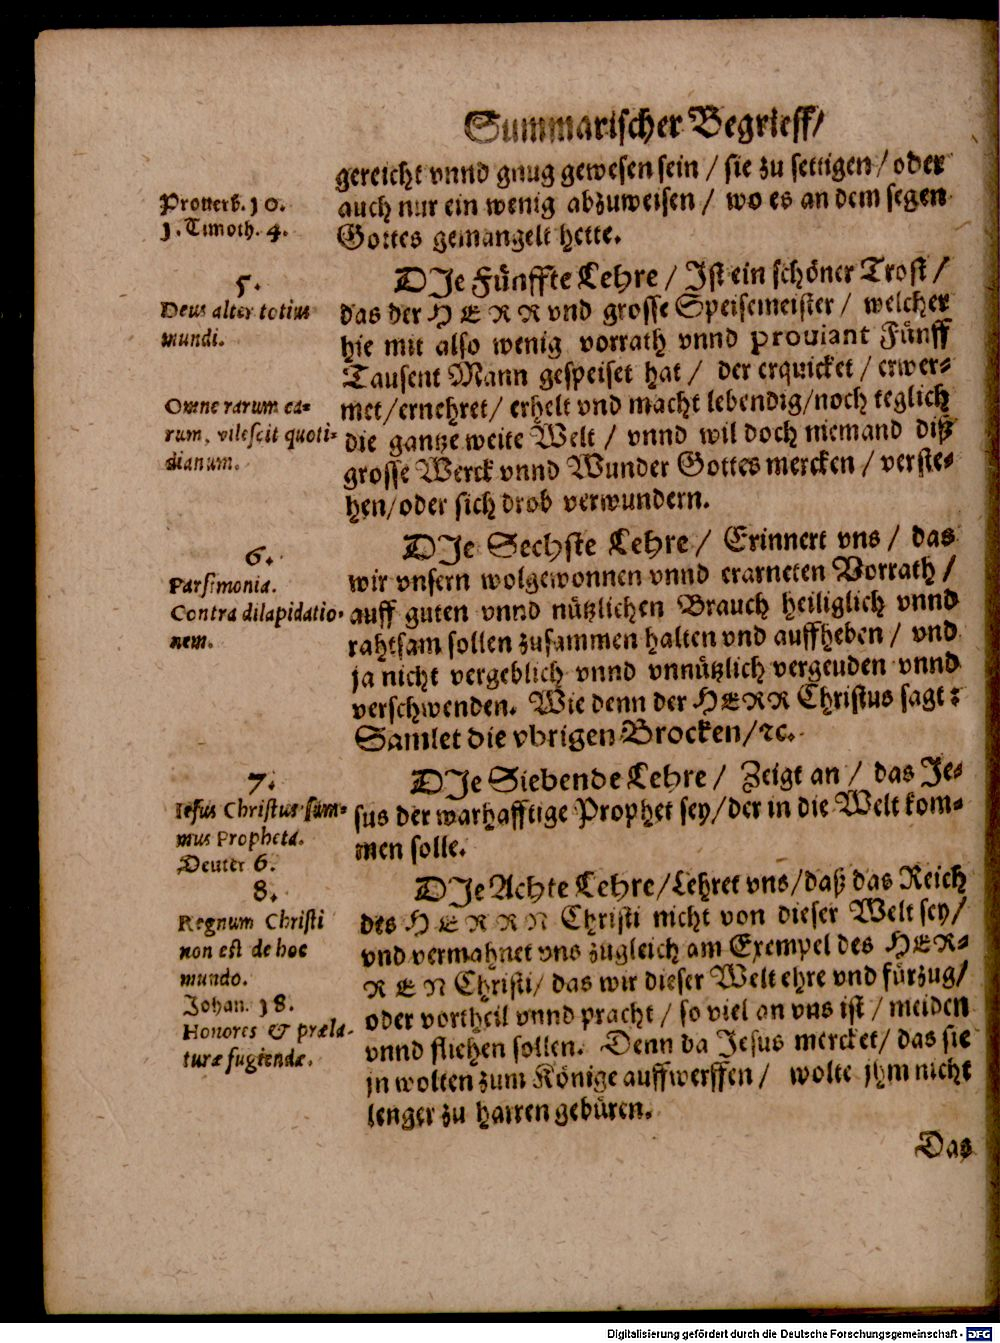 Summarischer Begrieff/
gereicht vnnd gnug gewesen sein / sie zu settigen / oder
auch nur ein wenig abzuweisen / wo es an dem segen
Gottes gemangelt hette.
Prouerb. 10.
1. Timoth. 4.
DIe Fünffte Lehre / Ist ein schöner Trost /
das der HERR vnd grosse Speisemeister / welcher
hie mit also wenig vorrath vnnd prouiant Fünff
Tausent Mann gespeiset hat / der erquicket / erwer-
met/ernehret/ erhelt vnd macht lebendig/noch teglich
die gantze weite Welt / vnnd wil doch niemand diß
grosse Werck vnnd Wunder Gottes mercken / verste-
hen/oder sich drob verwundern.
5.
Deus alter totius
mundi.
Omne rarum ca-
rum, vilescit quoti-
dianum.
DIe Sechste Lehre / Erinnert vns / das
wir vnsern wolgewonnen vnnd erarneten Vorrath /
auff guten vnnd nützlichen Brauch heiliglich vnnd
rahtsam sollen zusammen halten vnd auffheben / vnd
ja nicht vergeblich vnnd vnnützlich vergeuden vnnd
verschwenden. Wie denn der HERR Christus sagt:
Samlet die vbrigen Brocken/ꝛc.
6.
Parsimonia.
Contra dilapidatio-
nem.
DIe Siebende Lehre / Zeigt an / das Je-
sus der warhafftige Prophet sey/der in die Welt kom-
men solle.
7.
Iesus Christus sum-
mus Propheta.
Deuter 6.
DIe Achte Lehre/Lehret vns/daß das Reich
des HERRN Christi nicht von dieser Welt sey/
vnd vermahnet vns zugleich am Exempel des HER-
REN Christi/ das wir dieser Welt ehre vnd fürzug/
oder vortheil vnnd pracht / so viel an vns ist / meiden
vnnd fliehen sollen. Denn da Jesus mercket/ das sie
jn wolten zum Könige auffwerffen / wolte jhm nicht
lenger zu harren gebüren.
8.
Regnum Christi
non est de hoc
mundo.
Johan. 18.
Honores & præla-
turæ fugiendæ.
Das
Digitalisierung gefördert durch die Deutsche Forschungsgemeinschaft - DFG